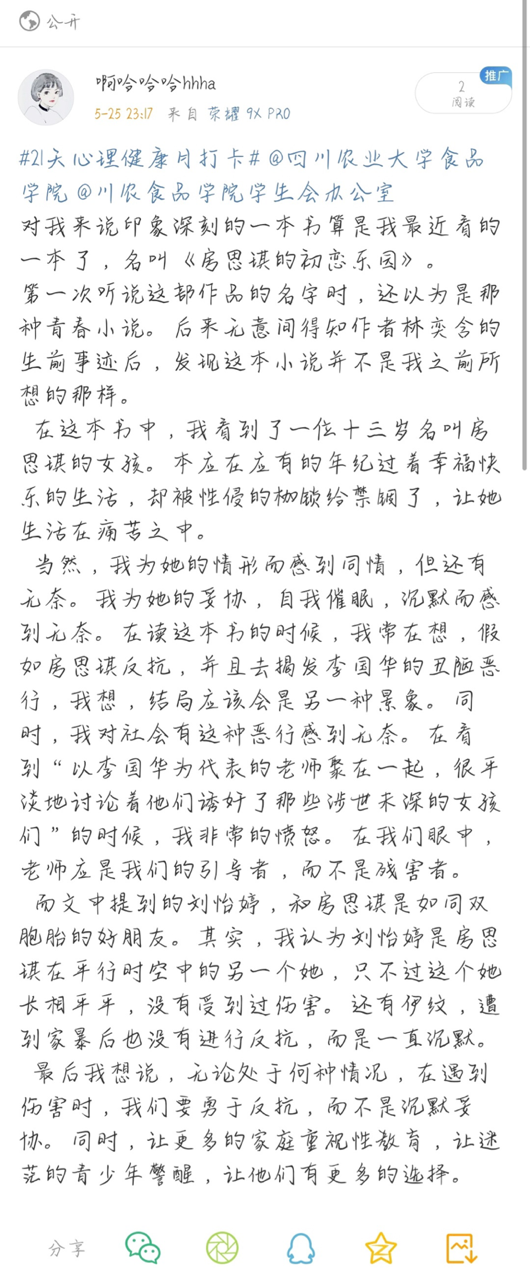 公开
啊哈哈哈hhha
推广
5-25 23:17 来自 荣耀 9X PRO
2
阅读
#21天心理健康月打卡# @四川农业大学食品
学院 @川农食品学院学生会办公室
对我来说印象深刻的一本书算是我最近看的
一本了，名叫《房思琪的初恋乐园》。
第一次听说这部作品的名字时，还以为是那
种青春小说。后来无意间得知作者林奕含的
生前事迹后，发现这本小说并不是我之前所
想的那样。
在这本书中，我看到了一位十三岁名叫房
思琪的女孩。本应在应有的年纪过着幸福快
乐的生活，却被性侵的枷锁给禁锢了，让她
生活在痛苦之中。
当然，我为她的情形而感到同情，但还有
无奈。我为她的妥协，自我催眠，沉默而感
到无奈。在读这本书的时候，我常在想，假
如房思琪反抗，并且去揭发李国华的丑陋恶
行，我想，结局应该会是另一种景象。同
时，我对社会有这种恶行感到无奈。在看
到“以李国华为代表的老师聚在一起，很平
淡地讨论着他们诱奸了那些涉世未深的女孩
们”的时候，我非常的愤怒。在我们眼中，
老师应是我们的引导者，而不是残害者。
而文中提到的刘怡婷，和房思琪是如同双
胞胎的好朋友。其实，我认为刘怡婷是房思
琪在平行时空中的另一个她，只不过这个她
长相平平，没有受到过伤害。还有伊纹，遭
到家暴后也没有进行反抗，而是一直沉默。
最后我想说，无论处于何种情况，在遇到
伤害时，我们要勇于反抗，而不是沉默妥
协。同时，让更多的家庭重视性教育，让迷
茫的青少年警醒，让他们有更多的选择。
分享